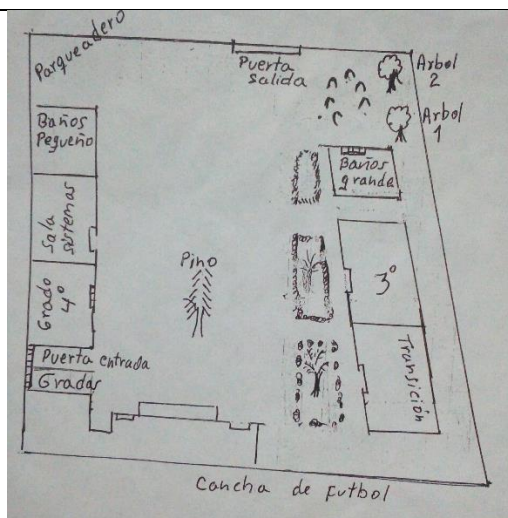 Parqueadero
Puerta
salida
Arbol
2
Arbol
1
Baños
Pequeño
Baños
grande
Sala
sistemas
Pino
3º
Grado
4º
Puerta entrada
Gradas
Transición
Cancha de Futbol